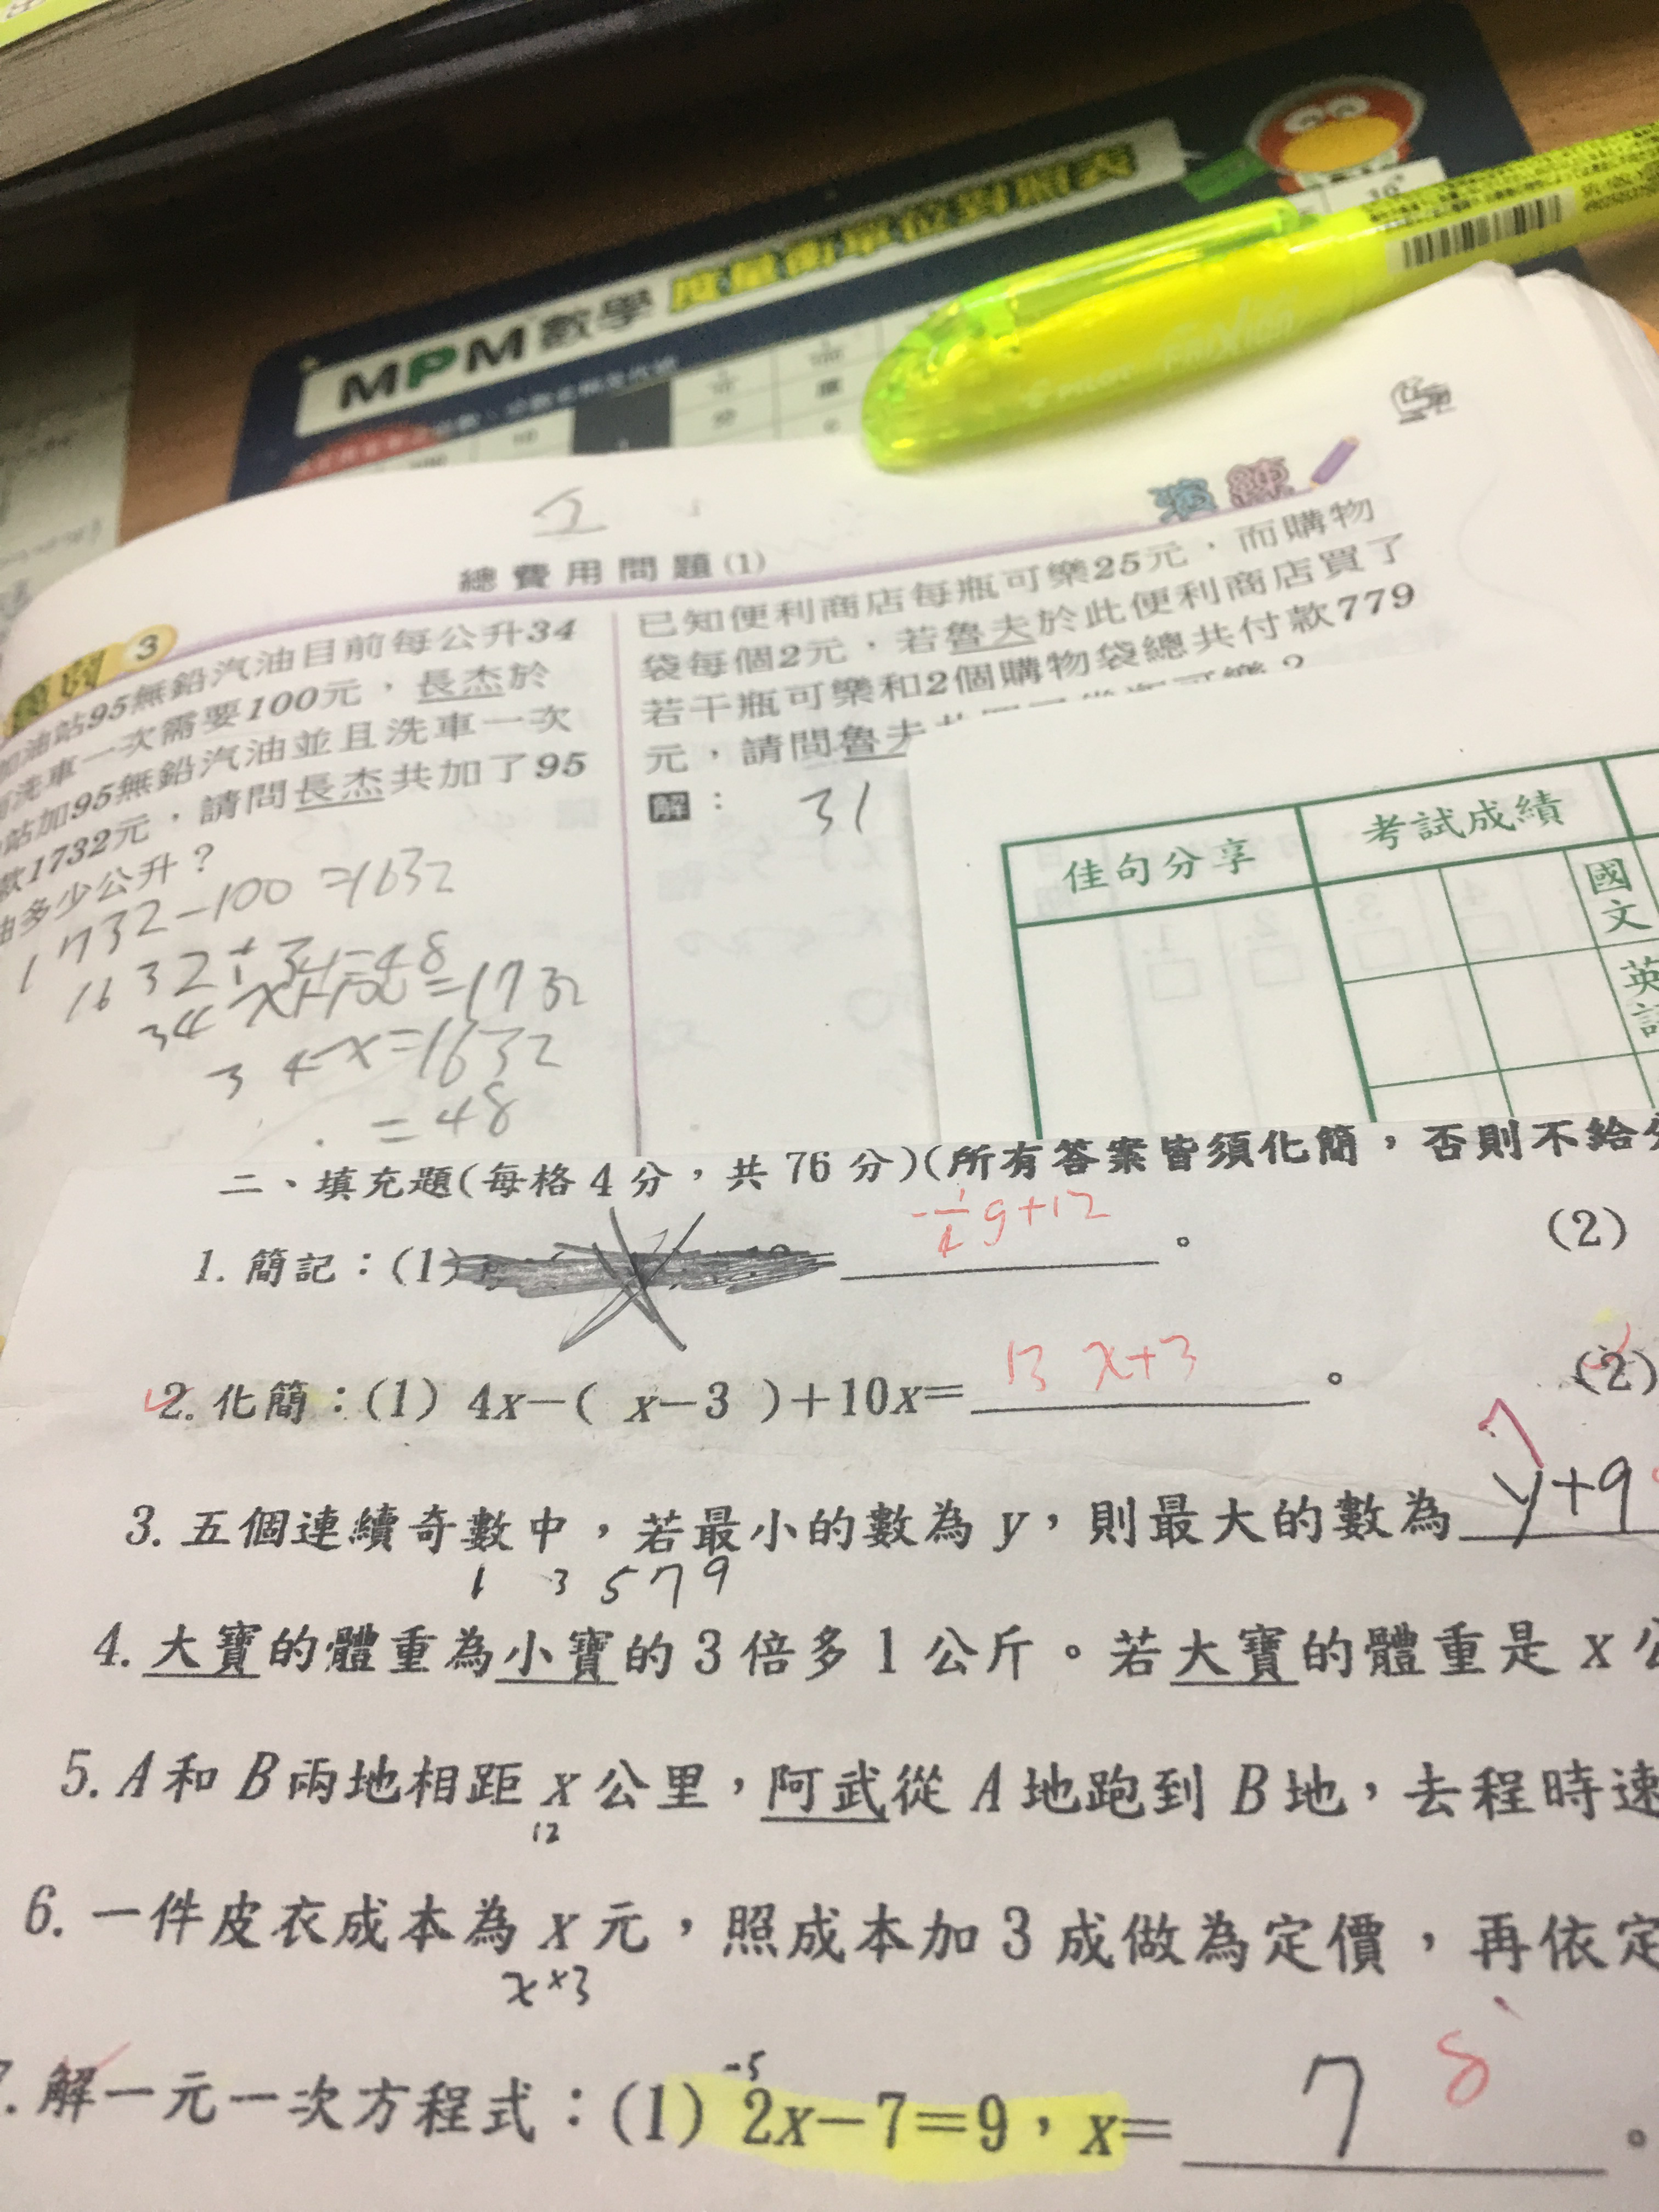 MPM數學 度量衡單位對照表
FRIXION
演練
總費用問題(1)
3
加油站95無鉛汽油目前每公升34
洗車一次需要100元，長杰於
站加95無鉛汽油並且洗車一次
款1732元，請問長杰共加了95
油多少公升？
1732-100=1632
1632÷34=48
34x+100=1732
34x=1632
=48
已知便利商店每瓶可樂25元，而購物
袋每個2元，若魯夫於此便利商店買了
若干瓶可樂和2個購物袋總共付款779
元，請問魯夫
解： 31
佳句分享 考試成績
國文
英
二、填充題(每格4分，共76分)(所有答案皆須化簡，否則不給
1. 簡記：(1) -1/4 y+12 。 (2)
2. 化簡：(1) 4x-( x-3 )+10x= 13x+3 。 (2)
7
3. 五個連續奇數中，若最小的數為 y，則最大的數為 y+9
1 3 5 7 9
4. 大寶的體重為小寶的3倍多1公斤。若大寶的體重是 x 公
5. A和B兩地相距 x 公里，阿武從A地跑到B地，去程時速
12
6. 一件皮衣成本為 x 元，照成本加3成做為定價，再依定
x×3
-5
. 解一元一次方程式：(1) 2x-7=9，x= 7 8 。